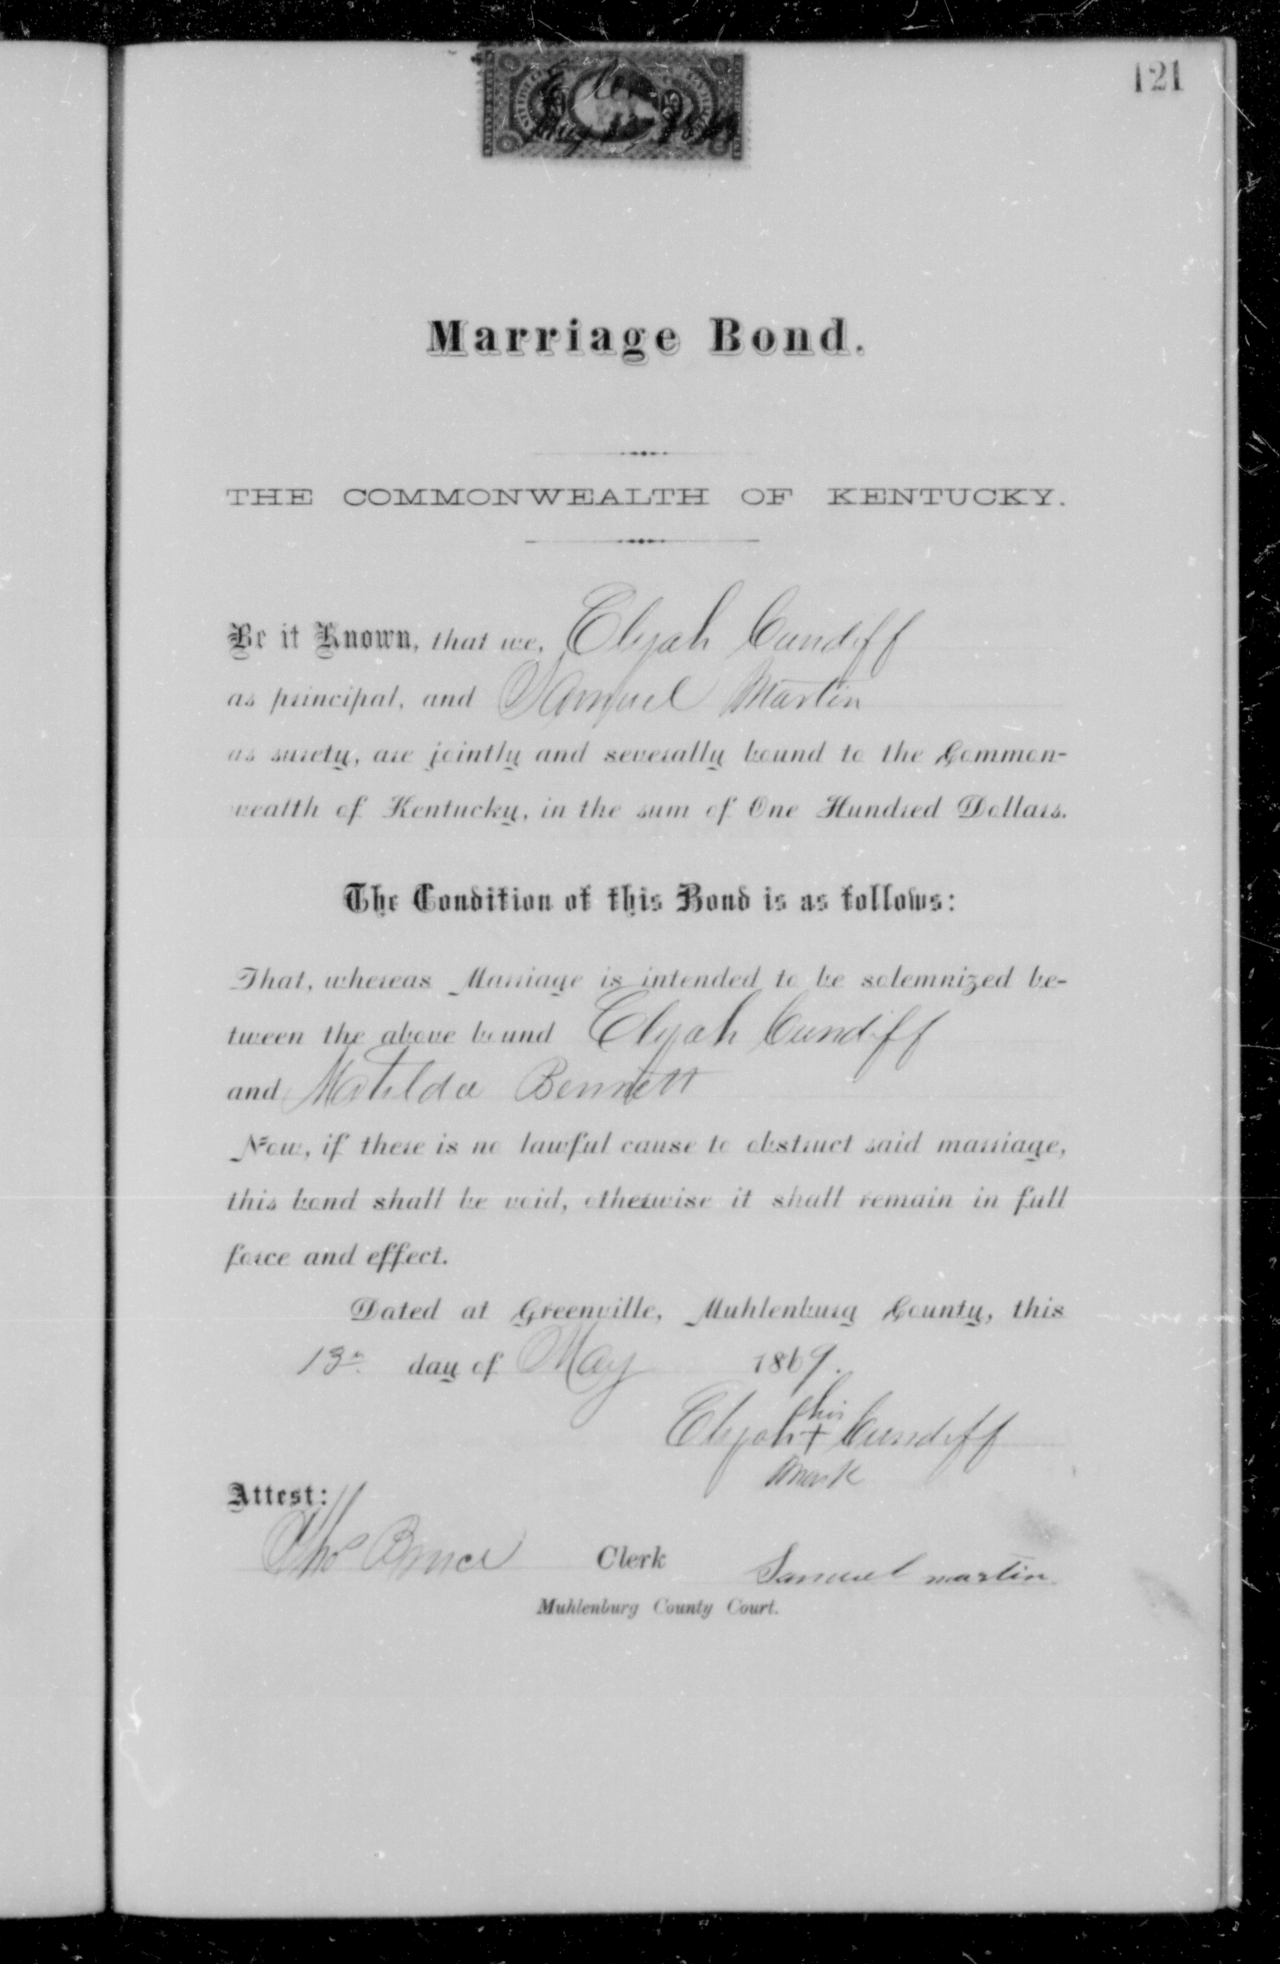 121
May 13 1869
Marriage Bond.
THE COMMONWEALTH OF KENTUCKY.
Be it Known, that we, Elijah Cundiff
as principal, and Samuel Martin
as surety, are jointly and severally bound to the Common-
wealth of Kentucky, in the sum of One Hundred Dollars.
The Condition of this Bond is as follows:
That, whereas Marriage is intended to be solemnized be-
tween the above bound Elijah Cundiff
and Matilda Bennett
Now, if there is no lawful cause to obstruct said marriage,
this bond shall be void, otherwise it shall remain in full
force and effect.
Dated at Greenville, Muhlenburg County, this
13" day of May 1869.
his
Elijah + Cundiff
mark
Attest:
Thos Bruce Clerk Samuel martin
Muhlenburg County Court.